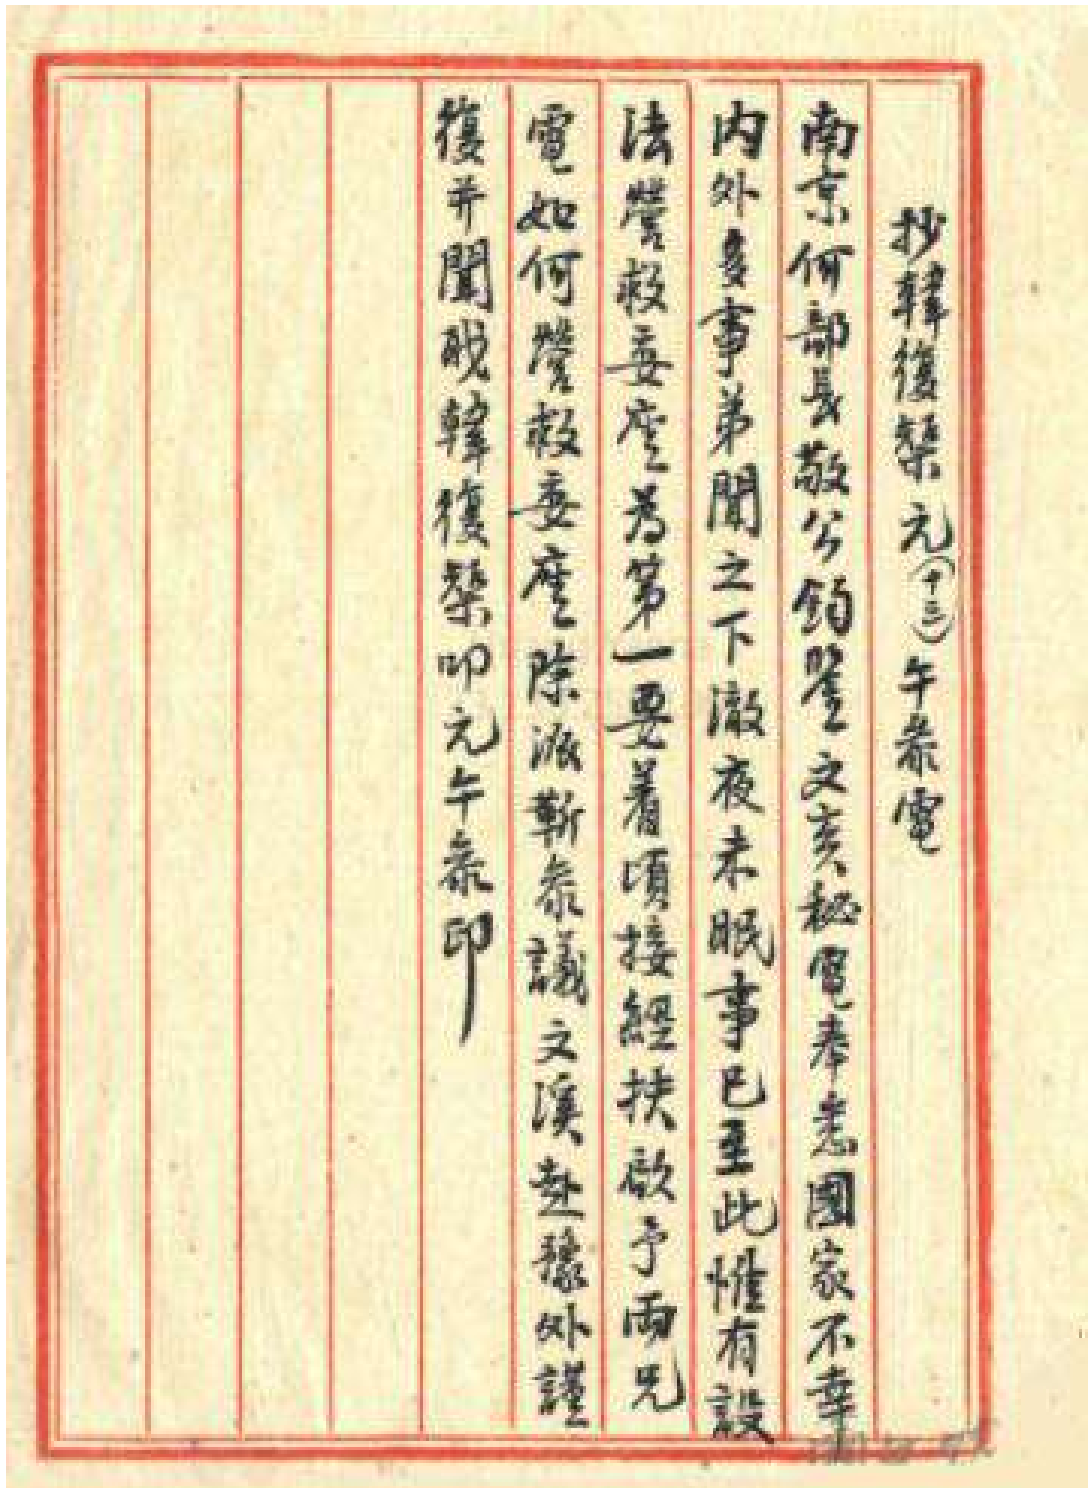 抄韓復榘元(十三)午叅電
南京何部長敬公鈞鑒文亥秘電奉悉國家不幸
内外多事弟聞之下澈夜未眠事已至此惟有設
法營救委座為第一要着頃接經扶啟予兩兄
電如何營救委座除派靳叅議文溪赴豫外謹
復并聞晚韓復榘叩元午叅印